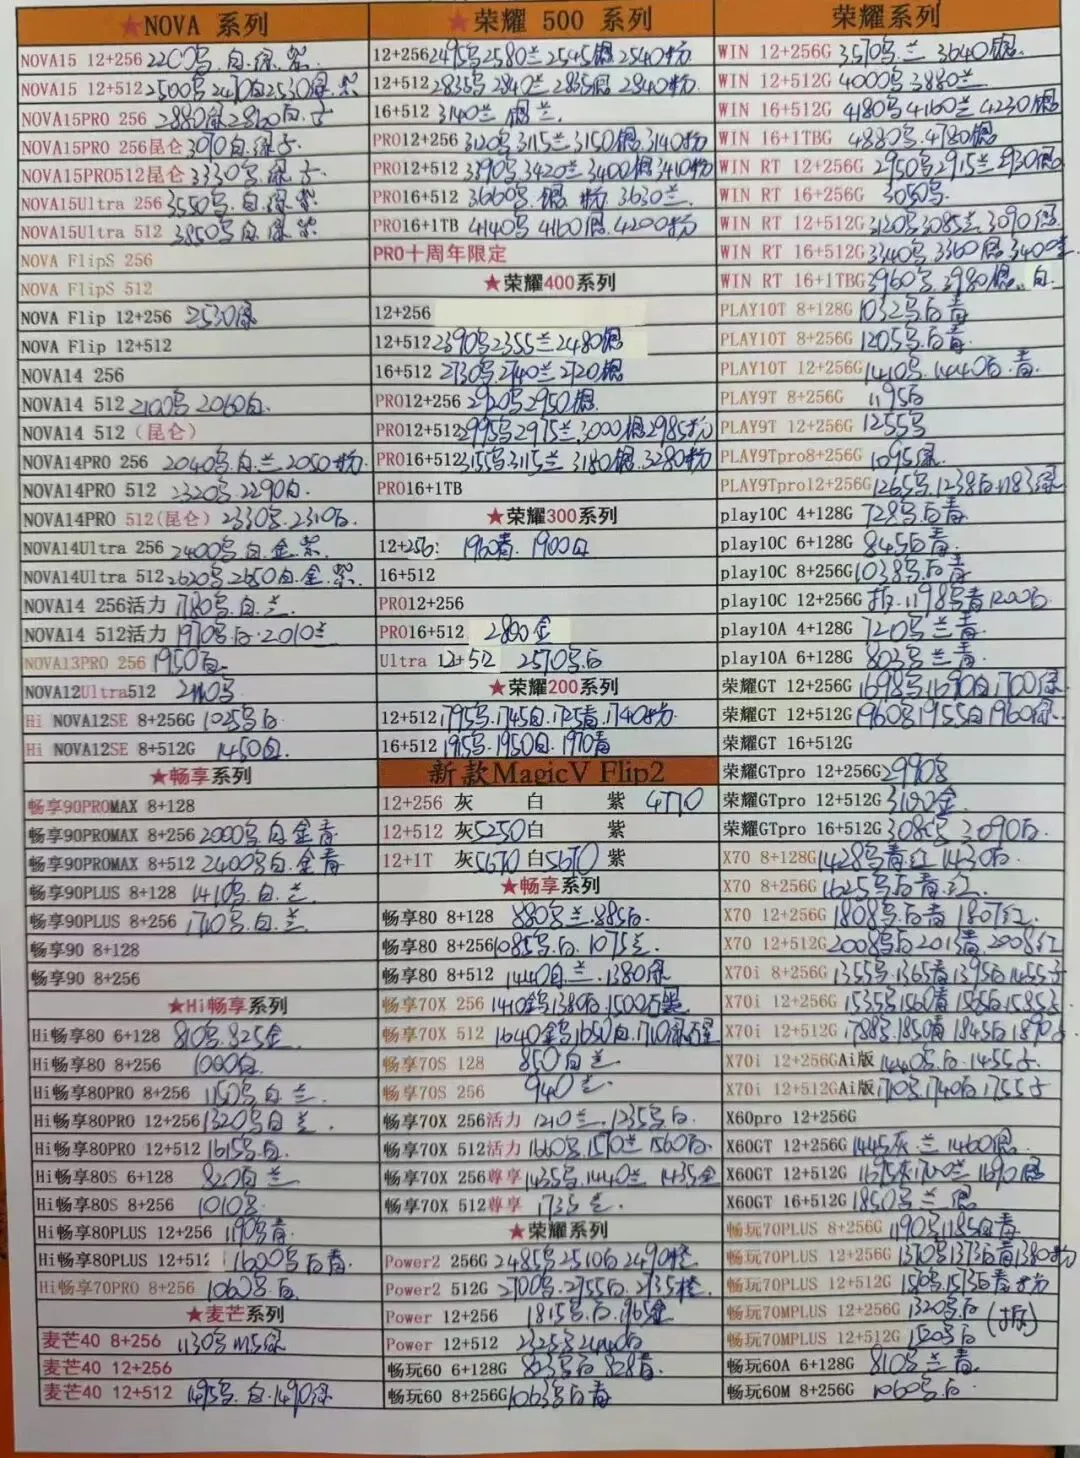 ★NOVA 系列
NOVA15 12+256 2200乌.白.绿.紫.
NOVA15 12+512 2500乌2470白2530绿.紫
NOVA15PRO 256 2880绿2860白.子
NOVA15PRO 256昆仑3090白.绿子.
NOVA15PRO512昆仑3330乌.绿子.
NOVA15Ultra 256 3550乌.白.绿.紫
NOVA15Ultra 512 3850乌.白.绿.紫
NOVA FlipS 256
NOVA FlipS 512
NOVA Flip 12+256 2530绿
NOVA Flip 12+512
NOVA14 256
NOVA14 512 2100乌 2060白.
NOVA14 512（昆仑）
NOVA14PRO 256 2040乌.白.兰2050粉
NOVA14PRO 512 2320乌.2290白.
NOVA14PRO 512(昆仑) 2330乌.2310白.
NOVA14Ultra 256 2400乌.白.金.紫.
NOVA14Ultra 512 2620乌2650白.金.紫.
NOVA14 256活力 1780乌.白.兰.
NOVA14 512活力 1970乌.白.2010兰
NOVA13PRO 256 1950白
NOVA12Ultra512 乌
Hi NOVA12SE 8+256G 1025乌白
Hi NOVA12SE 8+512G 1450白.
★畅享系列
畅享90PROMAX 8+128
畅享90PROMAX 8+256 2000乌.白.金青
畅享90PROMAX 8+512 2400乌白.金青
畅享90PLUS 8+128 1410乌.白.兰
畅享90PLUS 8+256 1710乌.白.兰
畅享90 8+128
畅享90 8+256
★Hi畅享系列
Hi畅享80 6+128 810乌.825金
Hi畅享80 8+256 1000白.
Hi畅享80PRO 8+256 1150乌.白.兰.
Hi畅享80PRO 12+256 1320乌.白兰.
Hi畅享80PRO 12+512 1615乌.白.
Hi畅享80S 6+128 820白兰
Hi畅享80S 8+256 1010乌
Hi畅享80PLUS 12+256 1190乌青
Hi畅享80PLUS 12+512 1600乌白青.
Hi畅享70PRO 8+256 1060乌.白
★麦芒系列
麦芒40 8+256 1130乌1115绿
麦芒40 12+256
麦芒40 12+512 1495乌.白.1490绿
★荣耀 500 系列
12+256 2495乌2580兰2545银2540粉
12+512 2835乌2840兰2855银2840粉
16+512 3140兰 银 兰.
PRO12+256 3120乌3115兰3150银3140粉
PRO12+512 3390乌3420兰3400银3410粉
PRO16+512 3660乌.银.粉 3630兰.
PRO16+1TB 4140乌 4160银.4200粉
PRO十周年限定
★荣耀400系列
12+256
12+512 2390乌2355兰2480银
16+512 2730乌2740兰2720银
PRO12+256 2920乌2950银.
PRO12+512 2995乌2975兰3000银2985粉
PRO16+512 3155乌3115兰3180银3280粉
PRO16+1TB
★荣耀300系列
12+256: 1960青. 1900白
16+512
PRO12+256
PRO16+512 2800金
Ultra 12+512 2570乌白
★荣耀200系列
12+512 1795乌.1745白.1725青.1740粉
16+512 1915乌.1950白.1970青
新款MagicV Flip2
12+256 灰 白 紫 4770
12+512 灰5250白 紫
12+1T 灰5670白5670紫
★畅享系列
畅享80 8+128 880乌兰.885白.
畅享80 8+256 1085乌.白.1075兰.
畅享80 8+512 1440白.兰.1380绿
畅享70X 256 1410金乌1380白.1500石墨
畅享70X 512 1640金乌1650白.1710绿石墨
畅享70S 128 850白兰
畅享70S 256 940兰.
畅享70X 256活力 1210兰.1235乌白
畅享70X 512活力 1660乌.1570兰1560白.
畅享70X 256尊享 1435乌.1440兰 1435金
畅享70X 512尊享 1735兰.
★荣耀系列
Power2 256G 2485乌2510白2490橙
Power2 512G 2700乌.2755白.2735橙.
Power 12+256 1815乌.白.1965金
Power 12+512 2325乌2440白
畅玩60 6+128G 823乌白828青.
畅玩60 8+256G 1063乌白青
荣耀系列
WIN 12+256G 3570乌.兰 3640银.
WIN 12+512G 4000乌3880兰
WIN 16+512G 4180乌4160兰4230银
WIN 16+1TBG 4880乌.4780银
WIN RT 12+256G 2950乌2915兰2930银
WIN RT 16+256G 3050乌.
WIN RT 12+512G 3120乌3085兰.3090银
WIN RT 16+512G 3340乌.3360银.3400兰
WIN RT 16+1TBG 3960乌.3980银.白.
PLAY10T 8+128G 1032乌白青
PLAY10T 8+256G 1205乌.白青.
PLAY10T 12+256G 1410乌.1440白.青.
PLAY9T 8+256G 1195白
PLAY9T 12+256G 1255乌
PLAY9Tpro8+256G 1095绿.
PLAY9Tpro12+256G 1265乌.1238白.1183绿
play10C 4+128G 728乌.白青
play10C 6+128G 845白青.
play10C 8+256G 1038乌.白青
play10C 12+256G 拆.1198乌青1200白.
play10A 4+128G 720乌兰青
play10A 6+128G 803乌兰青
荣耀GT 12+256G 1698乌.1690白1700绿
荣耀GT 12+512G 1960乌1955白1960绿
荣耀GT 16+512G
荣耀GTpro 12+256G 2990乌
荣耀GTpro 12+512G 3100金.
荣耀GTpro 16+512G 3085乌 3090白.
X70 8+128G 1428乌青.红 1430白.
X70 8+256G 1625乌白青.红.
X70 12+256G 1808乌.白青 1807红
X70 12+512G 2008乌白2013青.2008红
X70i 8+256G 1355乌.1365青1395白1455子
X70i 12+256G 1535乌1560青1565白1585子
X70i 12+512G 1788乌.1850青1845白1890子
X70i 12+256GAi版 1440乌白.1455子.
X70i 12+512GAi版 1710乌.1740白1755子
X60pro 12+256G
X60GT 12+256G 1445灰.兰 1460银.
X60GT 12+512G 1695灰1700兰1690银
X60GT 16+512G 1850乌兰银
畅玩70PLUS 8+256G 1190乌1185白青
畅玩70PLUS 12+256G 1370乌1373白青1380粉
畅玩70PLUS 12+512G 乌1573白青粉
畅玩70MPLUS 12+256G 1320乌白
畅玩70MPLUS 12+512G 1520乌白 (拆)
畅玩60A 6+128G 810乌兰青
畅玩60M 8+256G 1060乌.白